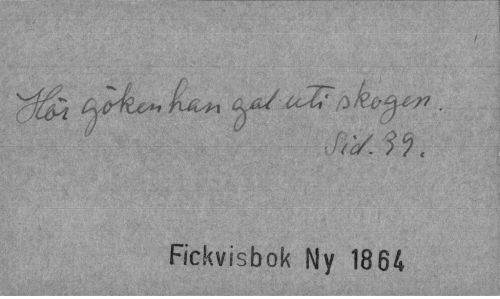 Hör göken han gal uti skogen.
Sid. 39.
Fickvisbok Ny 1864